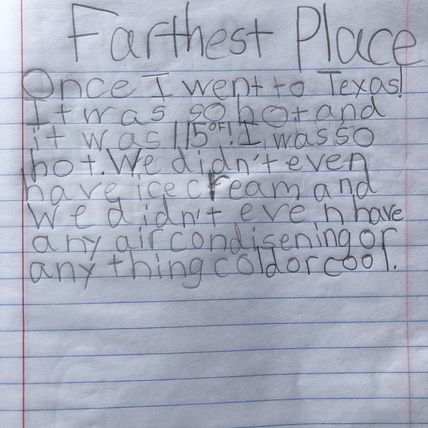 Farthest Place
Once I went to Texas!
It was so hot and
it was 115°F! I was so
hot. We didn't even
have ice cream and
we didn't even have
any air condisening or
any thing cold or cool.